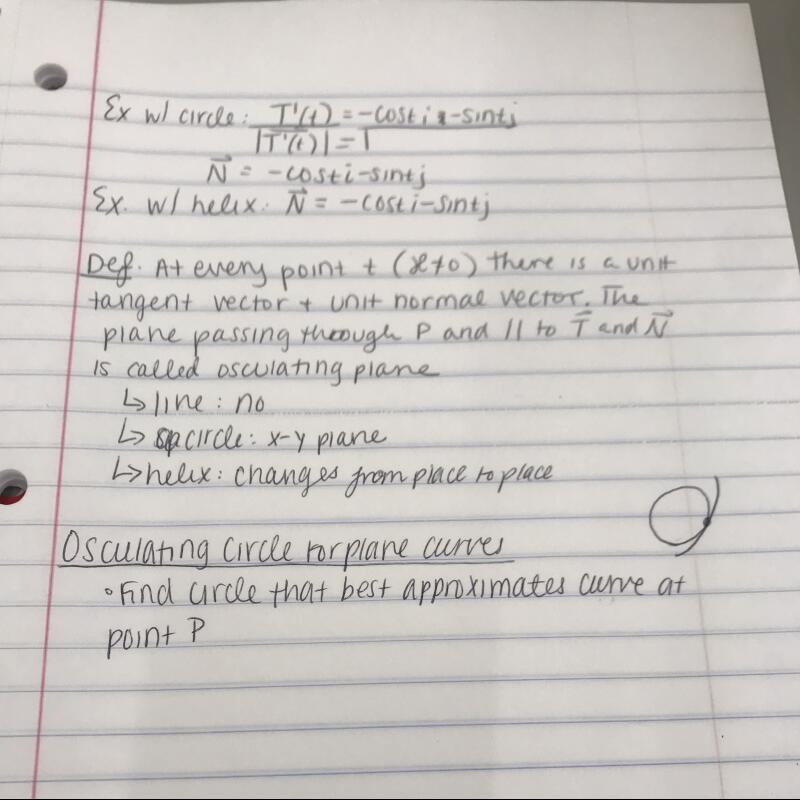 Ex w/ circle: T'(t) = -costi + -sintj
|T'(t)| = 1
N⃗ = -costi-sintj
Ex. w/ helix: N⃗ = -costi-sintj
Def. At every point t (ϰ≠0) there is a unit
tangent vector + unit normal vector. The
plane passing through P and || to T⃗ and N⃗
is called osculating plane
↳ line: no
↳ circle: x-y plane
↳ helix: changes from place to place
Osculating Circle for plane curves
• Find circle that best approximates curve at
point P